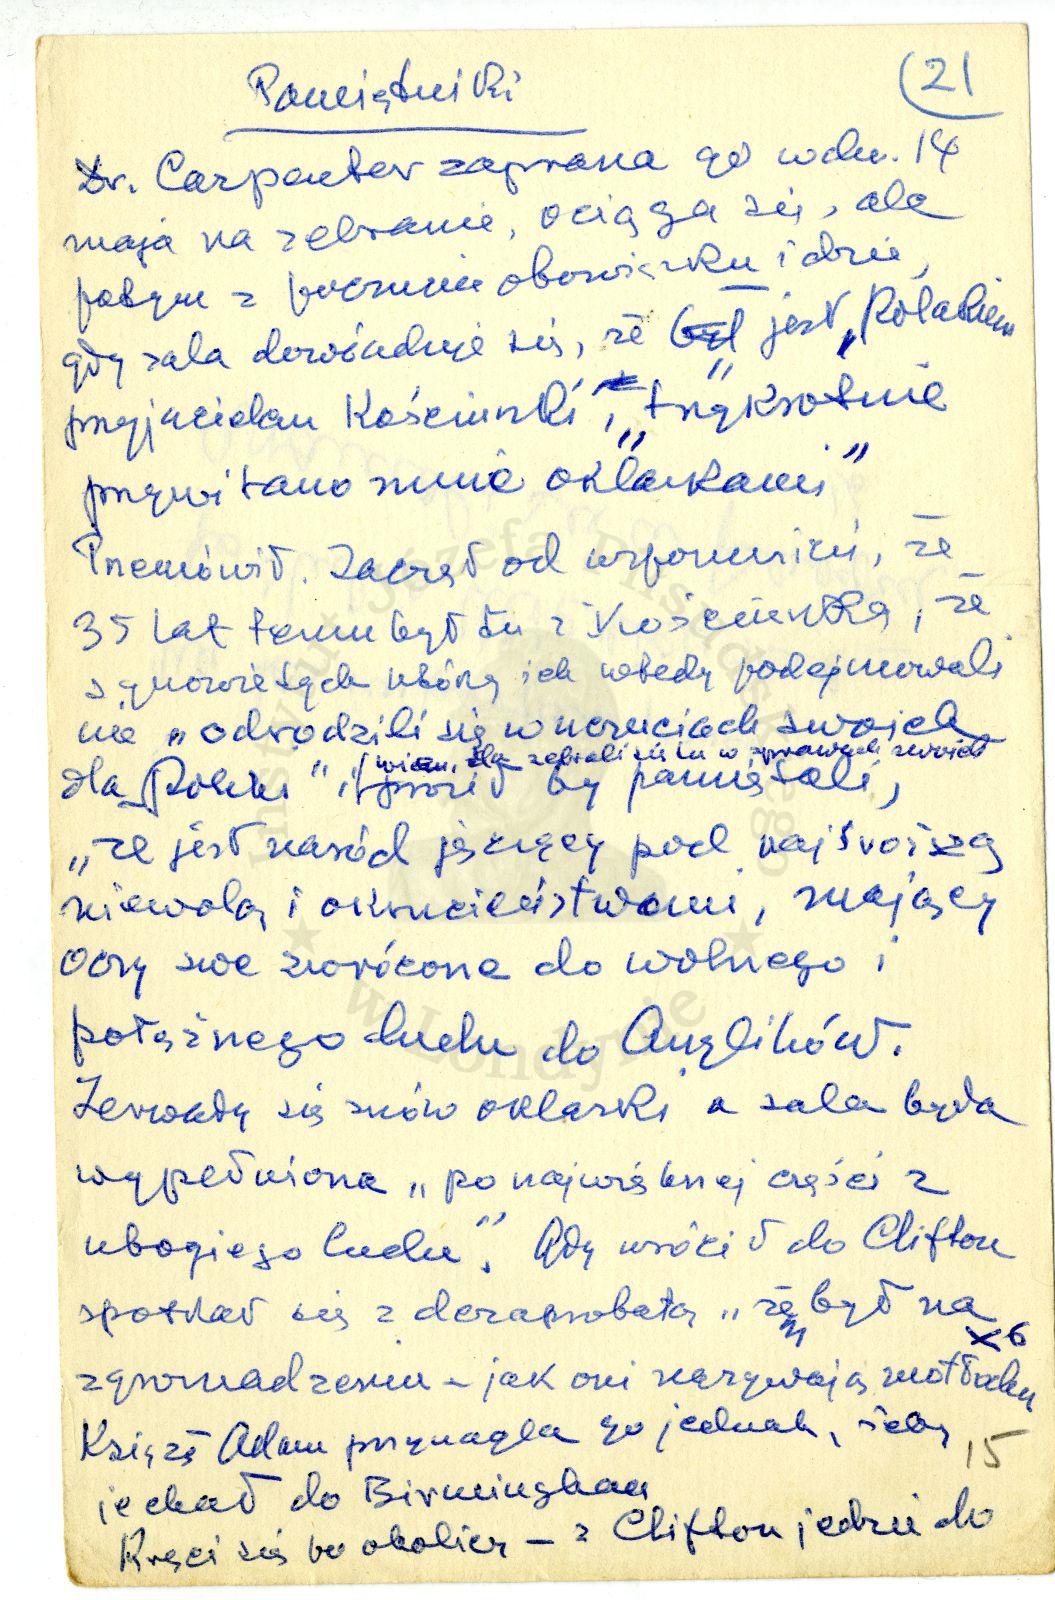 Pamiętniki
(21
Dr. Carpenter zaprasza go w dn. 14
maja na zebranie, ociąga się, ale
potym z poczucia obowiązku idzie,
gdy sala dowiaduje się, że był jest „Polakiem
przyjacielem Kościuszki", „trzykrotnie
przywitano mnie oklaskami"
Przemówił. Zaczął od wspomnień, że
35 lat temu był tu z Kościuszką, że
synowie tych którzy ich wtedy podejmowali
nie „odrodzili się w uczuciach swoich
więc, zebrali się tu w sprawach swoich
dla Polski" i prosił by pamiętali,
„że jest naród jęczący pod najsroższą
niewolą i okrucieństwami, mający
oczy swe zwrócone do wolnego i
potężnego ludu do Anglików.
Zerwały się znów oklaski a sala była
wypełniona „po największej części z
ubogiego ludu". Gdy wrócił do Clifton
spotkał się z dezaprobatą „że był na
x6
zgromadzeniu – jak oni nazywają motłochu
Książę Adam przynagla go jednak, żeby
15
jechał do Birmingham
Kręci się po okolicy – z Clifton jedzie do
Instytut Józefa Piłsudskiego
w Londynie